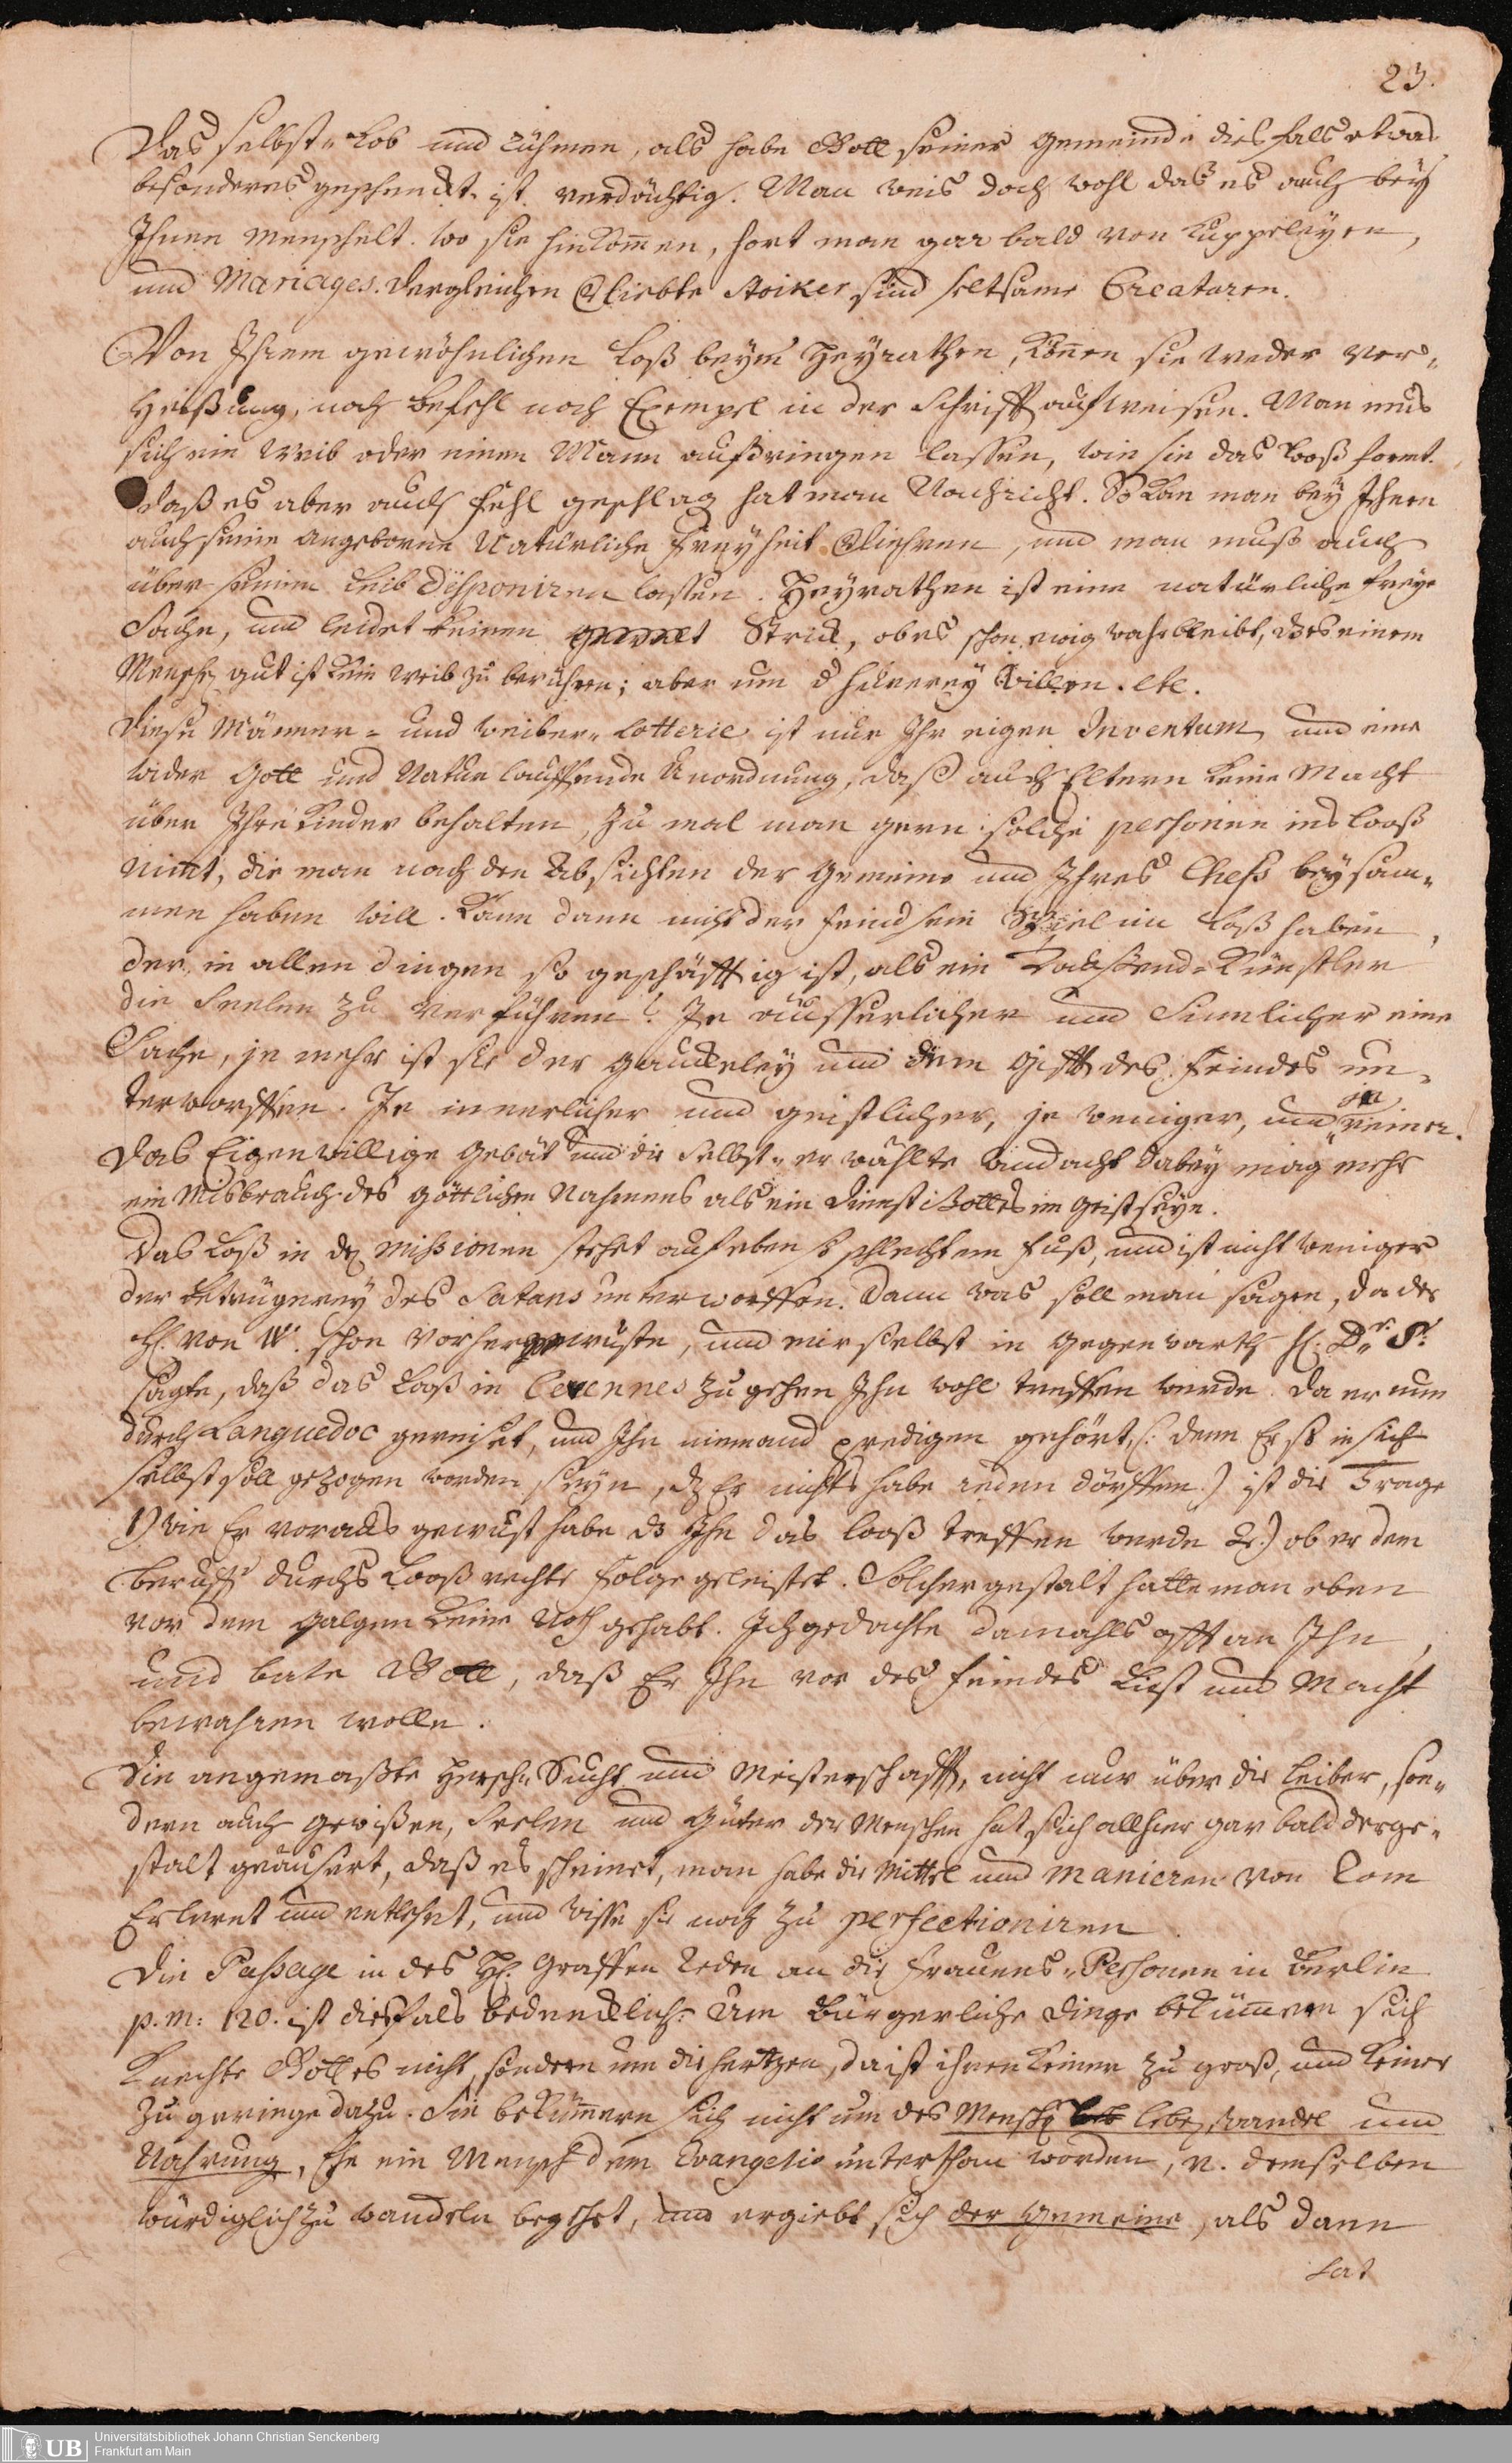 23.
Das selbst-Lob und rühmen, als habe Gott seiner Gemeinde diesfals etwas
besonderes geschenckt ist verdächtig. Man weis doch wohl das es auch bey
Ihnen menschelt. wo sie hinkom̄en, hört man gar bald von Kuppeleyen,
und Mariages. dergleichen verliebte Stoiker sind seltsame Creaturen.
Von Ihrem gewöhnlichen Loß beym Heyrathen, kön̄en sie weder Ver-
heißung, noch Befehl noch Exempel in der Schrifft aufweisen. Man mus
sich ein Weib oder einen Mann aufdringen lassen, wie sie das Looß formt.
daß es aber auch fehl geschlag hat man Nachricht. So kan man bey Ihnen
auch seine angeborne Natürliche Freyheit verliehren, und man muß auch
über seinen Leib disponiren lassen. Heyrathen ist eine natürliche freye
Sache, und leidet keinen Strick, ob es schon ewig wahr bleibt, das es einem
Mensch gut ist kein Weib zu berühren; aber um d Hurerey Willen. etc.
Diese Männer- und weiber-Lotterie ist nur Ihr eigen Inventum, und eine
wider Gott und Natur lauffende Unordnung, daß auch Eltern keine Macht
über Ihre Kinder behalten, zu mal man gern solche personen ins Looß
nim̄t, die man nach den Absichten der Gemeine und Ihres Chefs beysam-
men haben will. Kann dann nicht der Feind sein Spiel im Loß haben,
der, in allen dingen so geschäfftig ist, als ein Tausend-Künstler
die Seelen zu verführen? Je äusserlicher und Sinnlicher eine
Sache, je mehr ist sie der Gauckeley und dem Gifft des Feindes un-
terworffen. Je innerlicher und geistlicher, je weniger, und je reiner.
Das Eigenwillige Gebät und die selbst-erwählte Andacht dabey mag mehr
ein Misbrauch des Göttlichen Nahmens als ein dienst Gottes im Geist seyn.
Das Loß in den Missionen stehet auf eben so schlechtem Fuß, und ist nicht weniger
der Betrügerey des Satans unterworffen. Dann was soll man sagen, da der
H. von W. schon vorher wuste, und mir selbst in Gegenwarth H. Dr. S.
sagte, daß das Looß in Cevennes zu gehen Ihn wohl treffen werde. da er nun
durch Languedoc gereiset, und Ihn niemand predigen gehört, (: denn Er so in sich
selbst soll gezogen worden seyn, dz Er nichts habe reden dörffen.) ist die Frage
1) wie Er voraus gewust habe dz Ihn das looß treffen werde 2.) ob er dem
Beruff durchs Looß rechte Folge geleistet. Solchergestalt hatte man eben
vor dem Galgen keine Noth gehabt. Ich gedachte damahls offt an Ihn,
und bate Gott, daß Er Ihn vor des Feindes List und Macht
bewahren wolle.
Die angemaßte Hersch-Sucht und Meisterschafft, nicht nur über die Leiber, son-
dern auch Gewißen, Seelen und Güter der Menschen hat sich allhier gar bald derge-
stalt geäusert, daß es scheinet, man habe die Mittel und Manieren von Rom
Erlernt und entlehnt, und wisse sie noch zu perfectioniren
Die Passage in des H. Graffen Reden an die Frauens-Personen in Berlin
p. m: 120. ist diesfals bedencklich: Um Bürgerliche Dinge beküm̄ern sich
Knechte Gottes nicht, sondern um die Hertzen, da ist ihnen keiner zu groß, und keiner
zu geringe dazu. Sie beküm̄ern sich nicht um des Mensch Leb, Wandel und
Nahrung, Ehe ein Mensch dem Evangelio unterthan worden, u. demselben
würdiglich zu wandeln begehrt, und ergiebt sich der Gemeine, als dann
hat
UB
Universitätsbibliothek Johann Christian Senckenberg
Frankfurt am Main